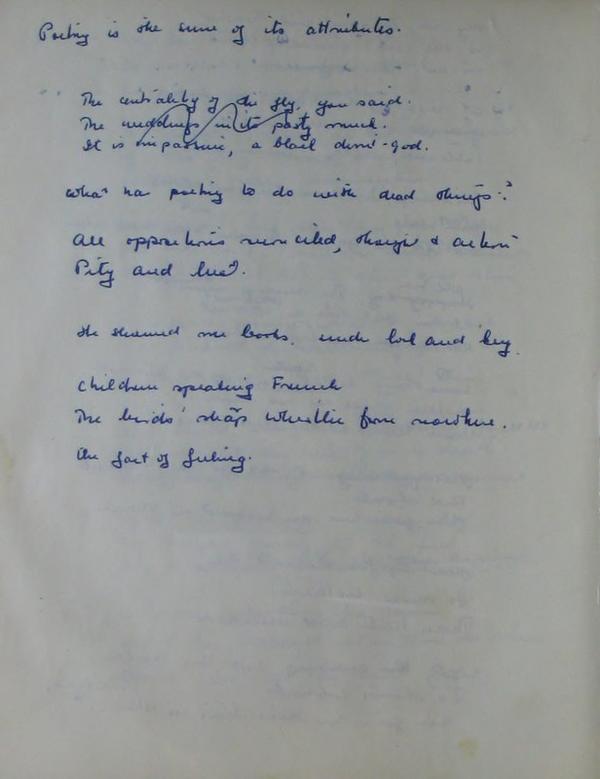 Poetry is the sum of its attributes.
The centrality of the fly, you said.
The in its pasty smock.
It is impassive, a black demi-god.
What has poetry to do with dead things?
All oppositions reconciled, thought & action
Pity and lust.
He showed me books. under lock and key.
Children speaking French
The birds' sharp whistle from nowhere.
The fact of feeling.